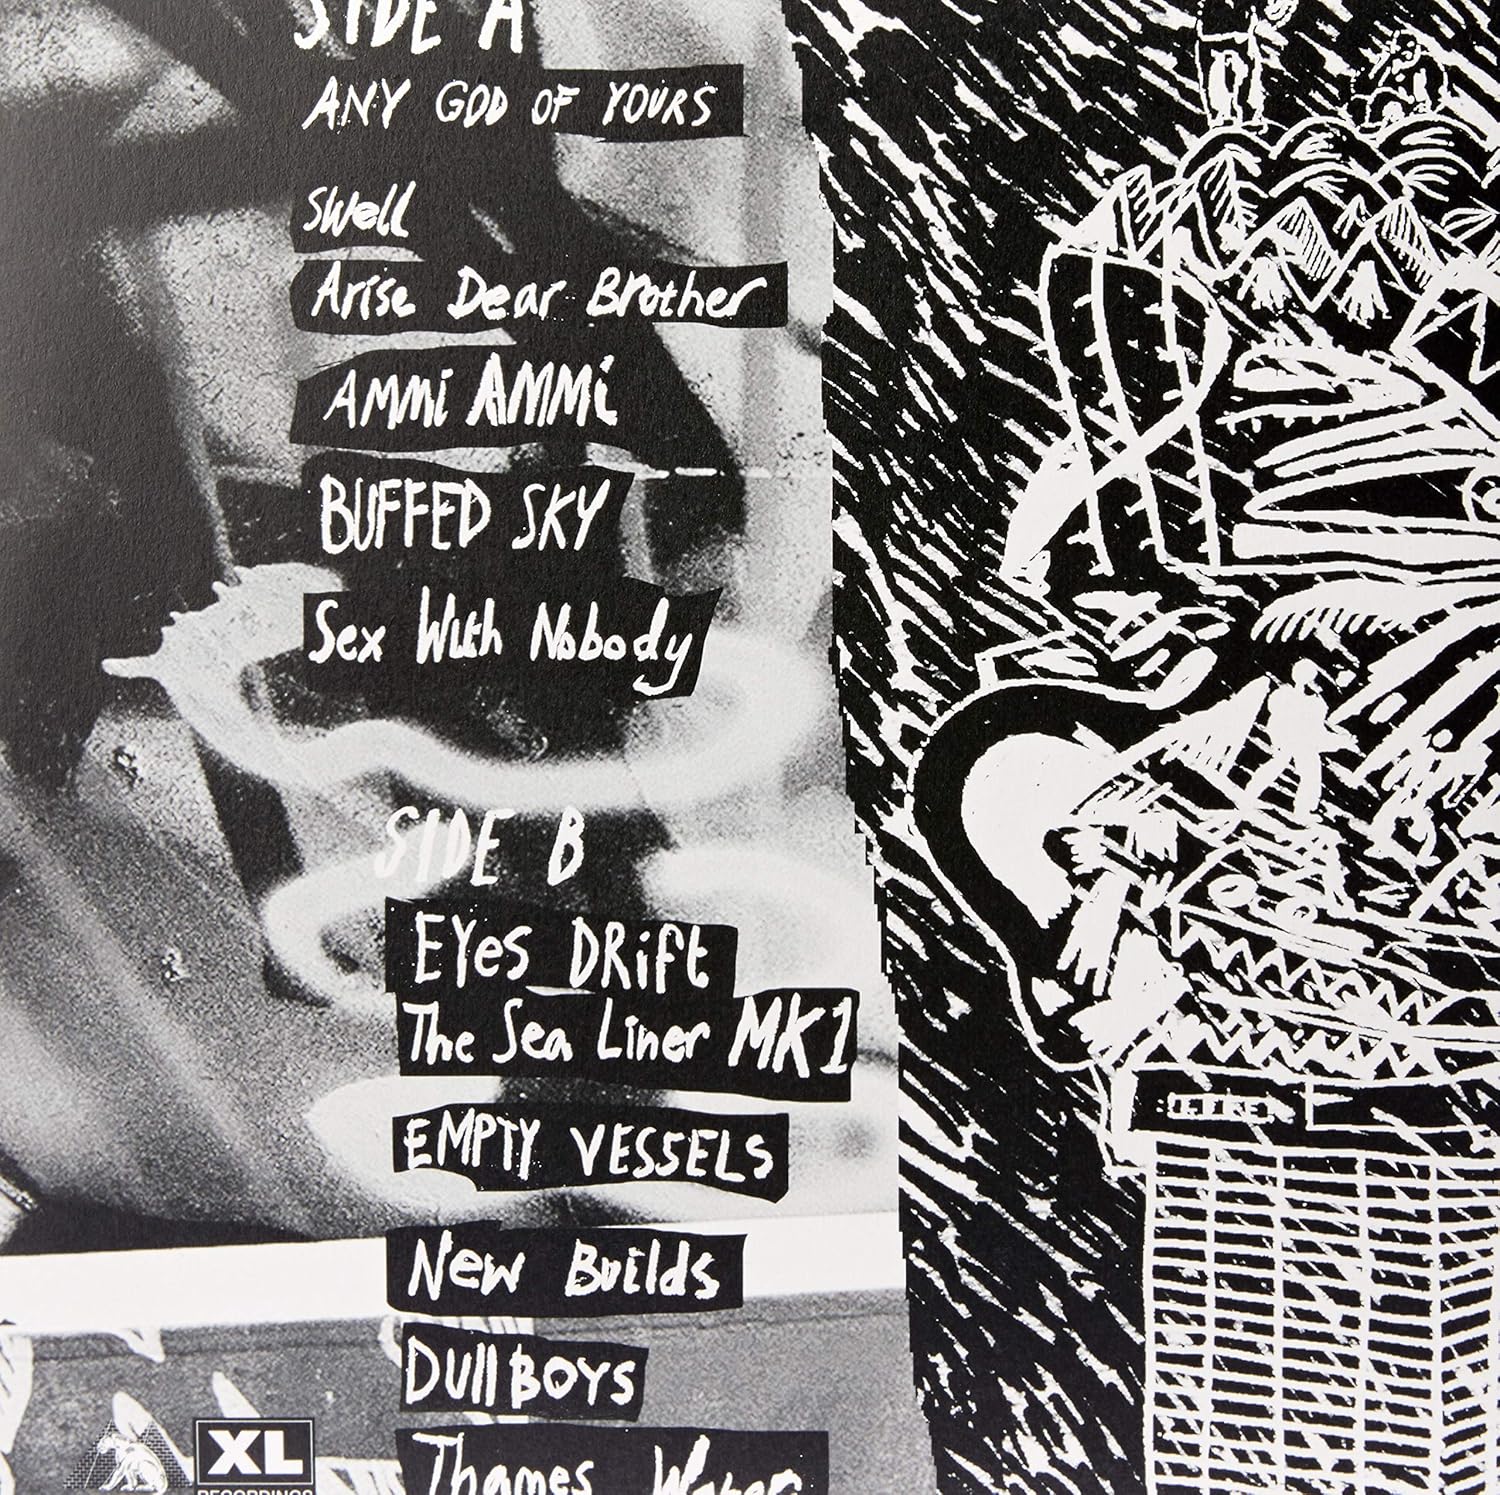 SIDE A
ANY GOD OF YOURS
Swell
Arise Dear Brother
AMMi AMMi
BUFFED SKY
Sex With Nobody
SIDE B
EYes DRift
The Sea Liner MK1
EMPTY VESSELS
New Builds
Dull BOYS
Thames Water
XL
RECORDINGS